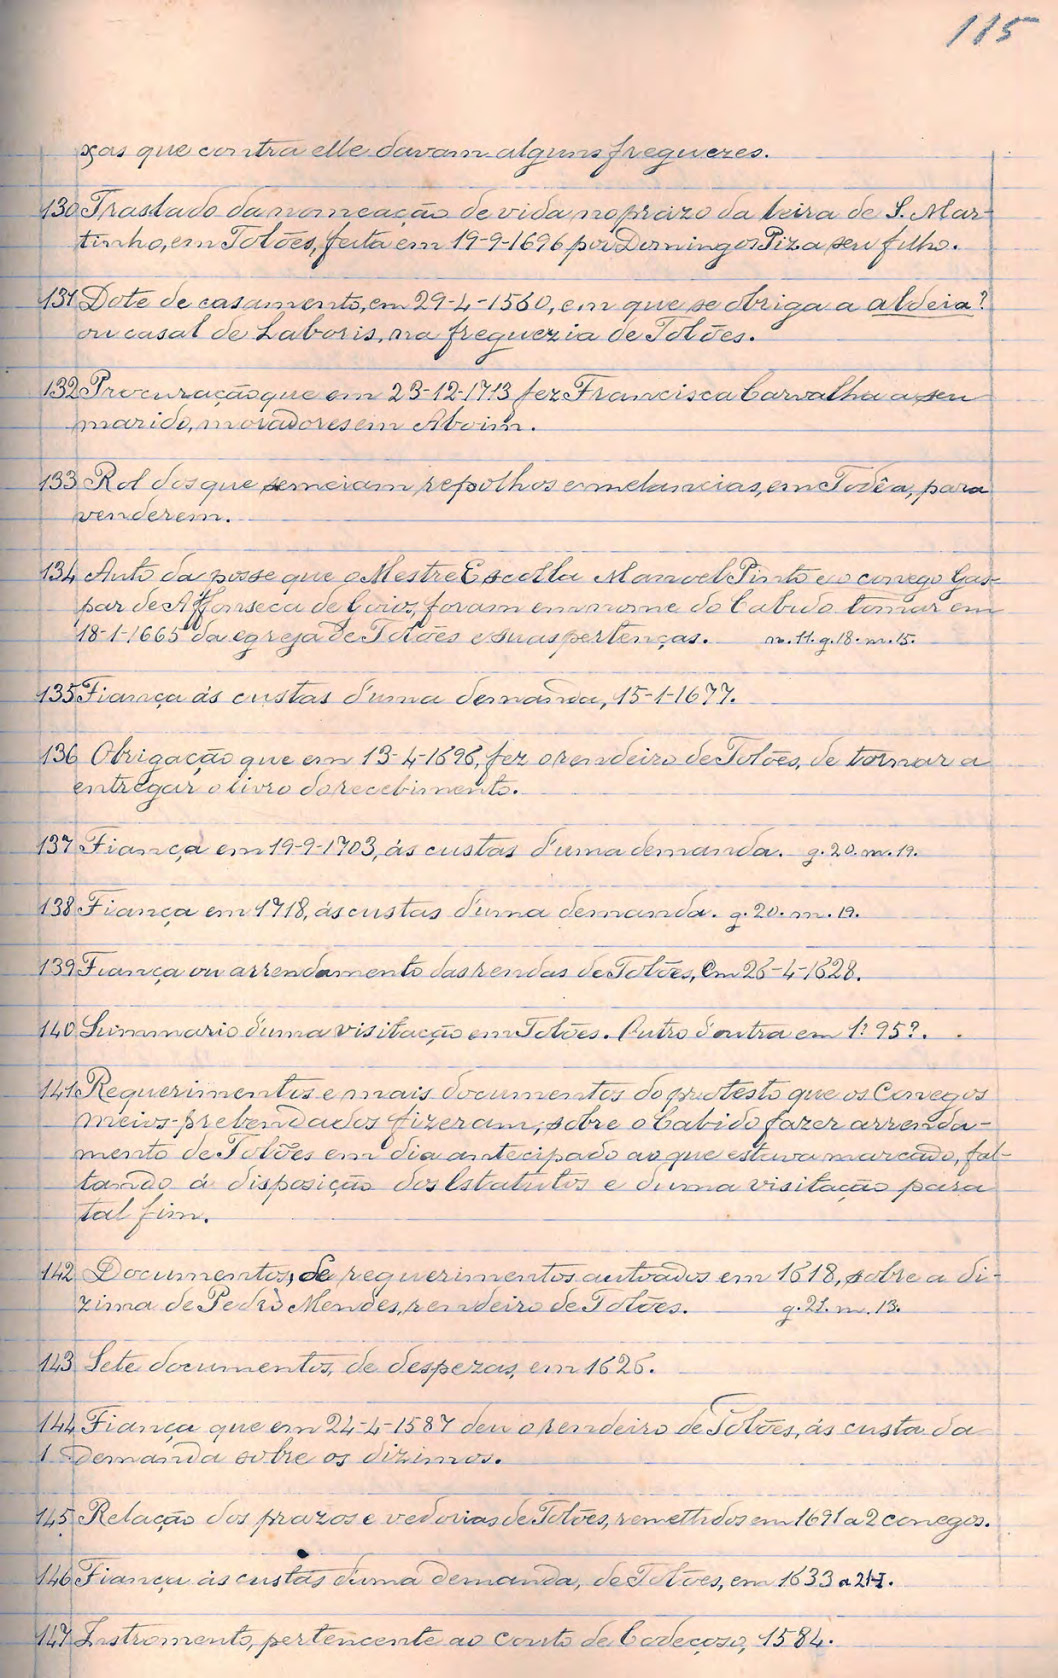 115
xas que contra elle davam alguns freguezes.
130 Traslado da nomeação de vida no prazo da leira de S. Mar-
tinho, em Tolões, feita em 19-9-1696 por Domingos Piz a seu filho.
131 Dote de casamento, em 29-4-1560, em que se obriga a aldeia?
ou casal de Laboris, na freguezia de Tolões.
132 Procuração que em 23-12-1713 fez Francisca Carvalha a seu
marido, moradores em Aboim.
133 Rol dos que semeiam repolhos e melancias, em Todêa, para
venderem.
134 Auto da posse que o Mestre Escolla Manoel Pinto e o conego Gas-
par de Affonseca de Goios, foram em nome do Cabido tomar em
18-1-1665 da egreja de Tolões e suas pertenças. n. 11. g. 18. m. 15.
135 Fiança ás custas d'uma demanda, 15-1-1677.
136 Obrigação que em 13-4-1696, fez o rendeiro de Tolões, de tornar a
entregar o livro do recebimento.
137 Fiança em 19-9-1703, ás custas d'uma demanda. g. 20. m. 19.
138 Fiança em 1718, ás custas d'uma demanda. g. 20. m. 19.
139 Fiança ou arrendamento das rendas de Tolões, em 26-4-1628.
140 Summario d'uma visitação em Tolões. Outro d'outra em 1?95?.
141 Requerimentos e mais documentos do protesto que os Conegos
meios-prebendados fizeram, sobre o Cabido fazer arrenda-
mento de Tolões em dia antecipado ao que estava marcado, fal-
tando á disposição dos Estatutos e d'uma visitação para
tal fim.
142 Documentos, de requerimentos autoados em 1618, sobre a di-
zima de Pedro Mendes, rendeiro de Tolões. g. 21. m. 13.
143 Sete documentos, de despezas, em 1626.
144 Fiança que em 24-4-1587 deu o rendeiro de Tolões, ás custa da
1 demanda sobre os dizimos.
145 Relação dos prazos e vedorias de Tolões, remettidos em 1691 a 2 conegos.
146 Fiança ás custas d'uma demanda, de Tolões, em 1633
147 Instromento, pertencente ao couto de Codeçoso, 1584.